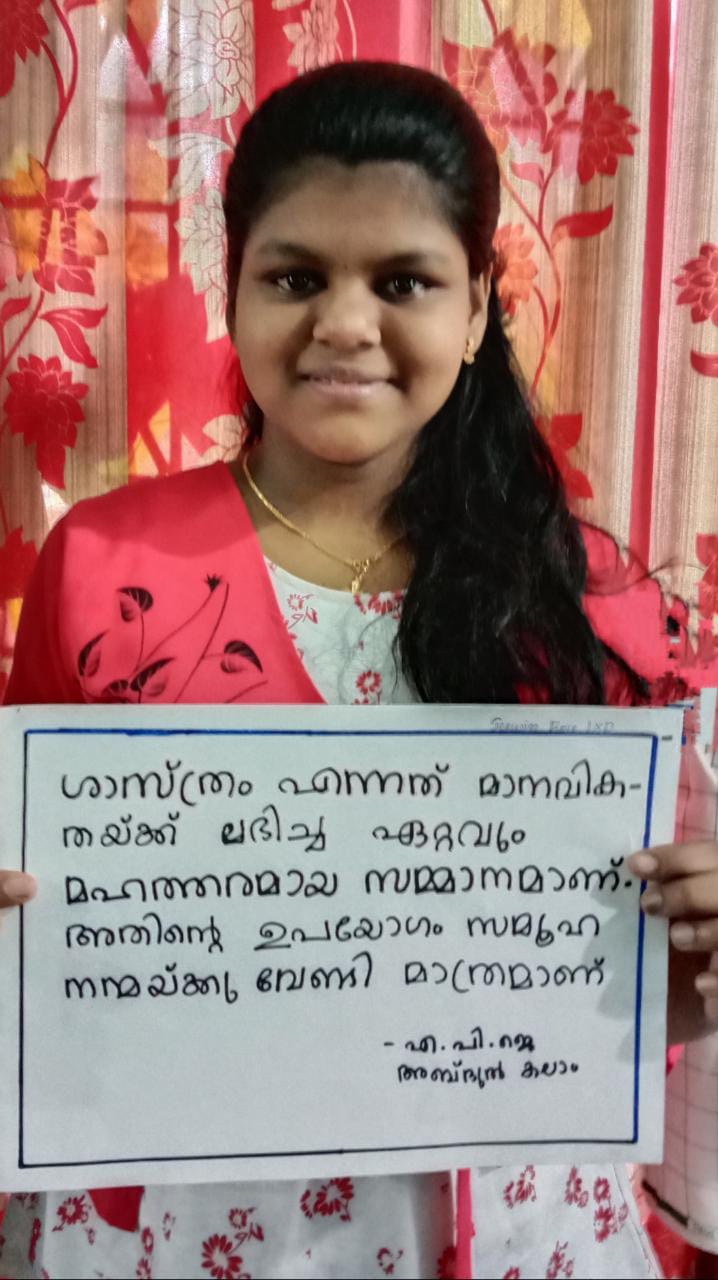 ശാസ്ത്രം എന്നത് മാനവിക-
തയ്ക്ക് ലഭിച്ച ഏറ്റവും
മഹത്തരമായ സമ്മാനമാണ്.
അതിന്റെ ഉപയോഗം സമൂഹ
നന്മയ്ക്കു വേണ്ടി മാത്രമാണ്
- എ.പി.ജെ
അബ്ദുൽ കലാം